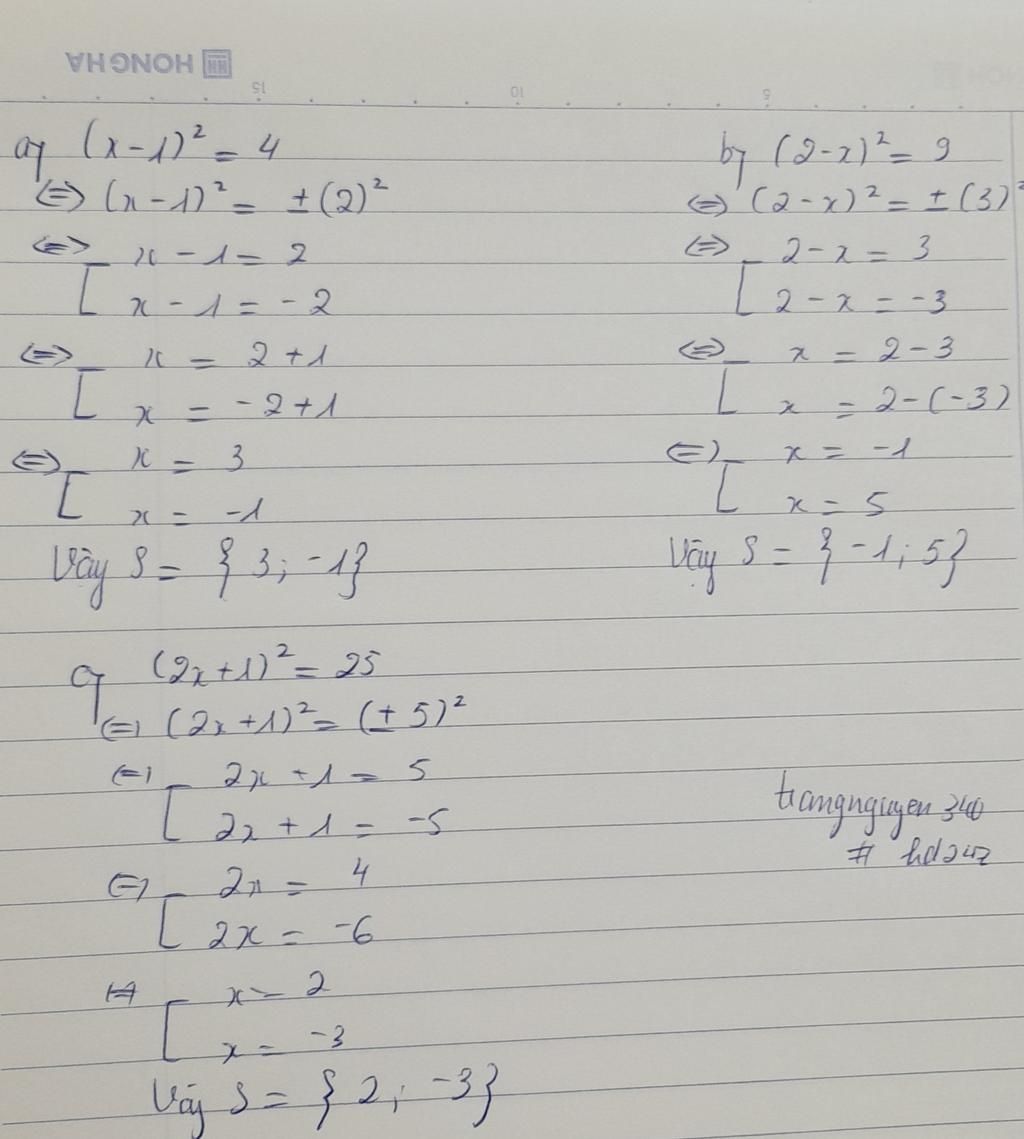 HONG HA
15 10 5
a) (x-1)² = 4
⇔ (x-1)² = ±(2)²
⇔ [ x - 1 = 2
x - 1 = -2
⇔ [ x = 2+1
x = -2+1
⇔ [ x = 3
x = -1
Vậy S = {3; -1}
b) (2-x)² = 9
⇔ (2-x)² = ±(3)²
⇔ [ 2-x = 3
2-x = -3
⇔ [ x = 2-3
x = 2-(-3)
⇔ [ x = -1
x = 5
Vậy S = {-1; 5}
c) (2x+1)² = 25
⇔ (2x+1)² = (±5)²
⇔ [ 2x+1 = 5
2x+1 = -5
⇔ [ 2x = 4
2x = -6
⇔ [ x = 2
x = -3
Vậy S = {2; -3}
trangnguyen 340
# hd247